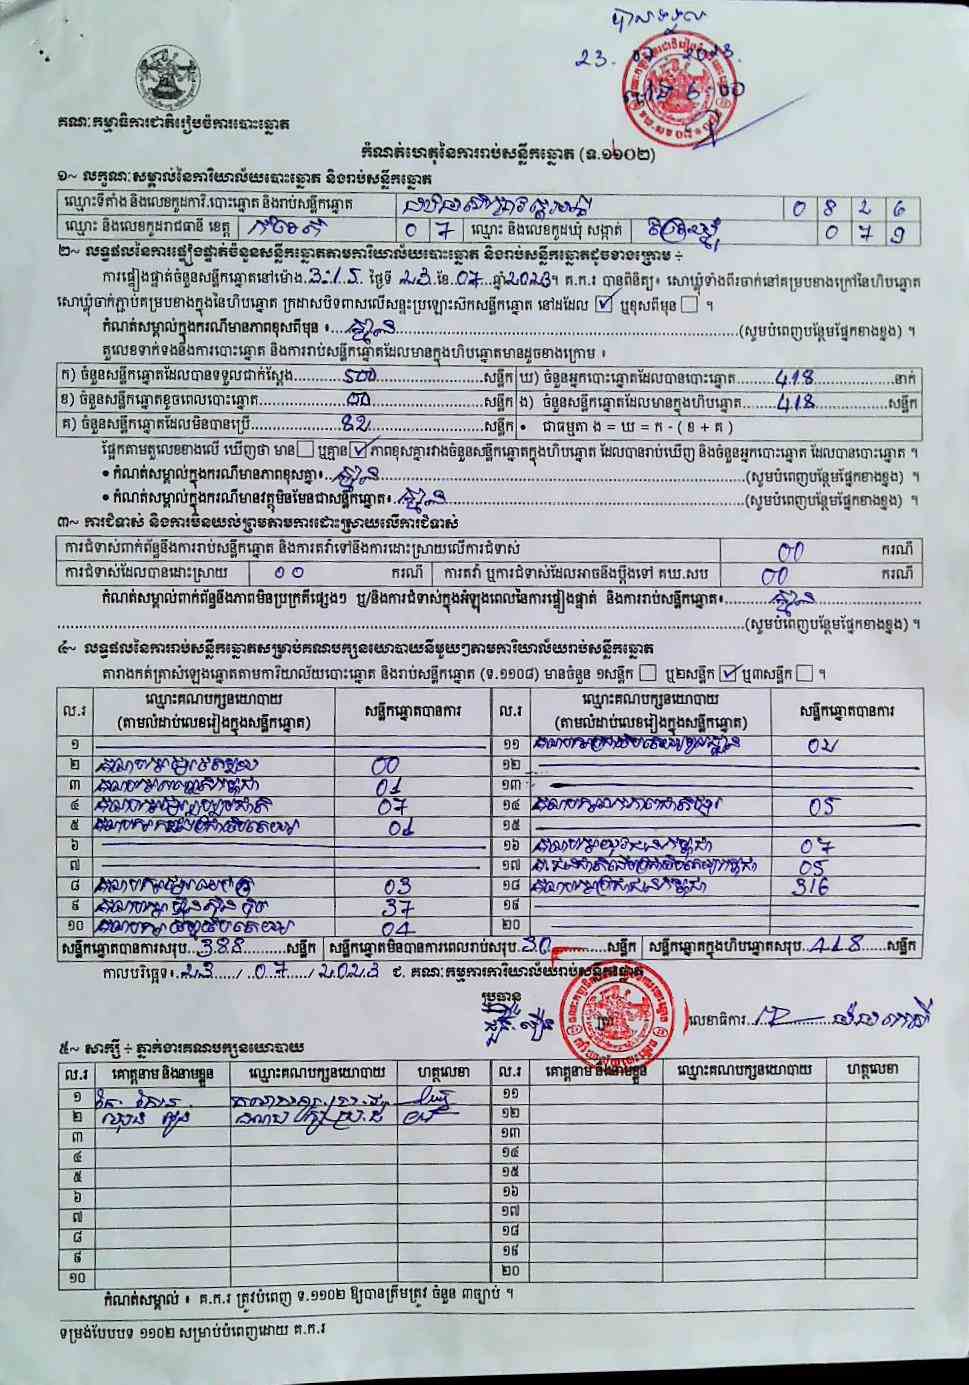 បានទទួល
23. 07 2023.
គណៈកម្មាធិការជាតិរៀបចំការបោះឆ្នោត
កំណត់ហេតុនៃការរាប់សន្លឹកឆ្នោត (ទ.១១០២)
១~ លក្ខណៈសម្គាល់នៃការិយាល័យបោះឆ្នោត និងរាប់សន្លឹកឆ្នោត
ឈ្មោះទីតាំង និងលេខកូដការិ.បោះឆ្នោត និងរាប់សន្លឹកឆ្នោត 0 8 2 6
ឈ្មោះ និងលេខកូដរាជធានី ខេត្ត កំពត 0 7 ឈ្មោះ និងលេខកូដឃុំ សង្កាត់ 0 7 9
២~ លទ្ធផលនៃការផ្ទៀងផ្ទាត់ចំនួនសន្លឹកឆ្នោតតាមការិយាល័យបោះឆ្នោត និងរាប់សន្លឹកឆ្នោតដូចខាងក្រោម ÷
ការផ្ទៀងផ្ទាត់ចំនួនសន្លឹកឆ្នោតនៅម៉ោង 3:15 ថ្ងៃទី 23 ខែ 07 ឆ្នាំ 2023។ គ.ក.រ បានពិនិត្យ៖ សោឃ្លុំទាំងពីរចាក់នៅគម្របខាងក្រៅនៃហិបឆ្នោត
សោឃ្លុំចាក់ភ្ជាប់គម្របខាងក្នុងនៃហិបឆ្នោត ក្រដាសបិទពាសលើសន្ទះប្រឡោះសឹកសន្លឹកឆ្នោត នៅដដែល ☑ ឬខុសពីមុន ☐ ។
កំណត់សម្គាល់ក្នុងករណីមានភាពខុសពីមុន ៖ គ្មាន (សូមបំពេញបន្ថែមផ្នែកខាងខ្នង) ។
តួលេខទាក់ទងនឹងការបោះឆ្នោត និងការរាប់សន្លឹកឆ្នោតដែលមានក្នុងហិបឆ្នោតមានដូចខាងក្រោម ៖
ក) ចំនួនសន្លឹកឆ្នោតដែលបានទទួលជាក់ស្ដែង 500 សន្លឹក ឃ) ចំនួនអ្នកបោះឆ្នោតដែលបានបោះឆ្នោត 418 នាក់
ខ) ចំនួនសន្លឹកឆ្នោតខូចពេលបោះឆ្នោត 00 សន្លឹក ង) ចំនួនសន្លឹកឆ្នោតដែលមានក្នុងហិបឆ្នោត 418 សន្លឹក
គ) ចំនួនសន្លឹកឆ្នោតដែលមិនបានប្រើ 82 សន្លឹក • ជាធម្មតា ង = ឃ = ក - ( ខ + គ )
ផ្អែកតាមតួលេខខាងលើ ឃើញថា មាន ☐ ឬគ្មាន ☑ ភាពខុសគ្នារវាងចំនួនសន្លឹកឆ្នោតក្នុងហិបឆ្នោត ដែលបានរាប់ឃើញ និងចំនួនអ្នកបោះឆ្នោត ដែលបានបោះឆ្នោត ។
• កំណត់សម្គាល់ក្នុងករណីមានភាពខុសគ្នា៖ គ្មាន (សូមបំពេញបន្ថែមផ្នែកខាងខ្នង) ។
• កំណត់សម្គាល់ក្នុងករណីមានវត្ថុមិនមែនជាសន្លឹកឆ្នោត៖ គ្មាន (សូមបំពេញបន្ថែមផ្នែកខាងខ្នង) ។
៣~ ការជំទាស់ និងការមិនយល់ព្រមតាមការដោះស្រាយលើការជំទាស់
ការជំទាស់ពាក់ព័ន្ធនឹងការរាប់សន្លឹកឆ្នោត និងការតវ៉ាទៅនឹងការដោះស្រាយលើការជំទាស់ 00 ករណី
ការជំទាស់ដែលបានដោះស្រាយ 00 ករណី ការតវ៉ា ឬការជំទាស់ដែលអាចនឹងប្ដឹងទៅ គឃ.សប 00 ករណី
កំណត់សម្គាល់ពាក់ព័ន្ធនឹងភាពមិនប្រក្រតីផ្សេងៗ ឬ/និងការជំទាស់ក្នុងអំឡុងពេលនៃការផ្ទៀងផ្ទាត់ និងការរាប់សន្លឹកឆ្នោត៖ គ្មាន
(សូមបំពេញបន្ថែមផ្នែកខាងខ្នង) ។
៤~ លទ្ធផលនៃការរាប់សន្លឹកឆ្នោតសម្រាប់គណបក្សនយោបាយនីមួយៗតាមការិយាល័យរាប់សន្លឹកឆ្នោត
តារាងកត់ត្រាសំឡេងឆ្នោតតាមការិយាល័យបោះឆ្នោត និងរាប់សន្លឹកឆ្នោត (ទ.១១០៨) មានចំនួន ១សន្លឹក ☐ ឬ២សន្លឹក ☑ ឬ៣សន្លឹក ☐ ។
ល.រ ឈ្មោះគណបក្សនយោបាយ (តាមលំដាប់លេខរៀងក្នុងសន្លឹកឆ្នោត) សន្លឹកឆ្នោតបានការ ល.រ ឈ្មោះគណបក្សនយោបាយ (តាមលំដាប់លេខរៀងក្នុងសន្លឹកឆ្នោត) សន្លឹកឆ្នោតបានការ
១ ១១ 02
២ 00 ១២
៣ 01 ១៣
៤ 07 ១៤ 05
៥ 01 ១៥
៦ ១៦ 07
៧ ១៧ 05
៨ 03 ១៨ គណបក្សប្រជាជនកម្ពុជា 316
៩ គណបក្សហ្វ៊ុនស៊ិនប៉ិច 37 ១៩
១០ 04 ២០
សន្លឹកឆ្នោតបានការសរុប 388 សន្លឹក សន្លឹកឆ្នោតមិនបានការពេលរាប់សរុប 30 សន្លឹក សន្លឹកឆ្នោតក្នុងហិបឆ្នោតសរុប 418 សន្លឹក
កាលបរិច្ឆេទ៖ 23 / 07 / 2023 ជ. គណៈកម្មការការិយាល័យរាប់សន្លឹកឆ្នោត
ប្រធាន លេខាធិការ
៥~ សាក្សី ÷ ភ្នាក់ងារគណបក្សនយោបាយ
ល.រ គោត្តនាម និងនាមខ្លួន ឈ្មោះគណបក្សនយោបាយ ហត្ថលេខា ល.រ គោត្តនាម និងនាមខ្លួន ឈ្មោះគណបក្សនយោបាយ ហត្ថលេខា
១ ១១
២ ១២
៣ ១៣
៤ ១៤
៥ ១៥
៦ ១៦
៧ ១៧
៨ ១៨
៩ ១៩
១០ ២០
កំណត់សម្គាល់ ៖ គ.ក.រ ត្រូវបំពេញ ទ.១១០២ ឱ្យបានត្រឹមត្រូវ ចំនួន ៣ច្បាប់ ។
ទម្រង់បែបបទ ១១០២ សម្រាប់បំពេញដោយ គ.ក.រ